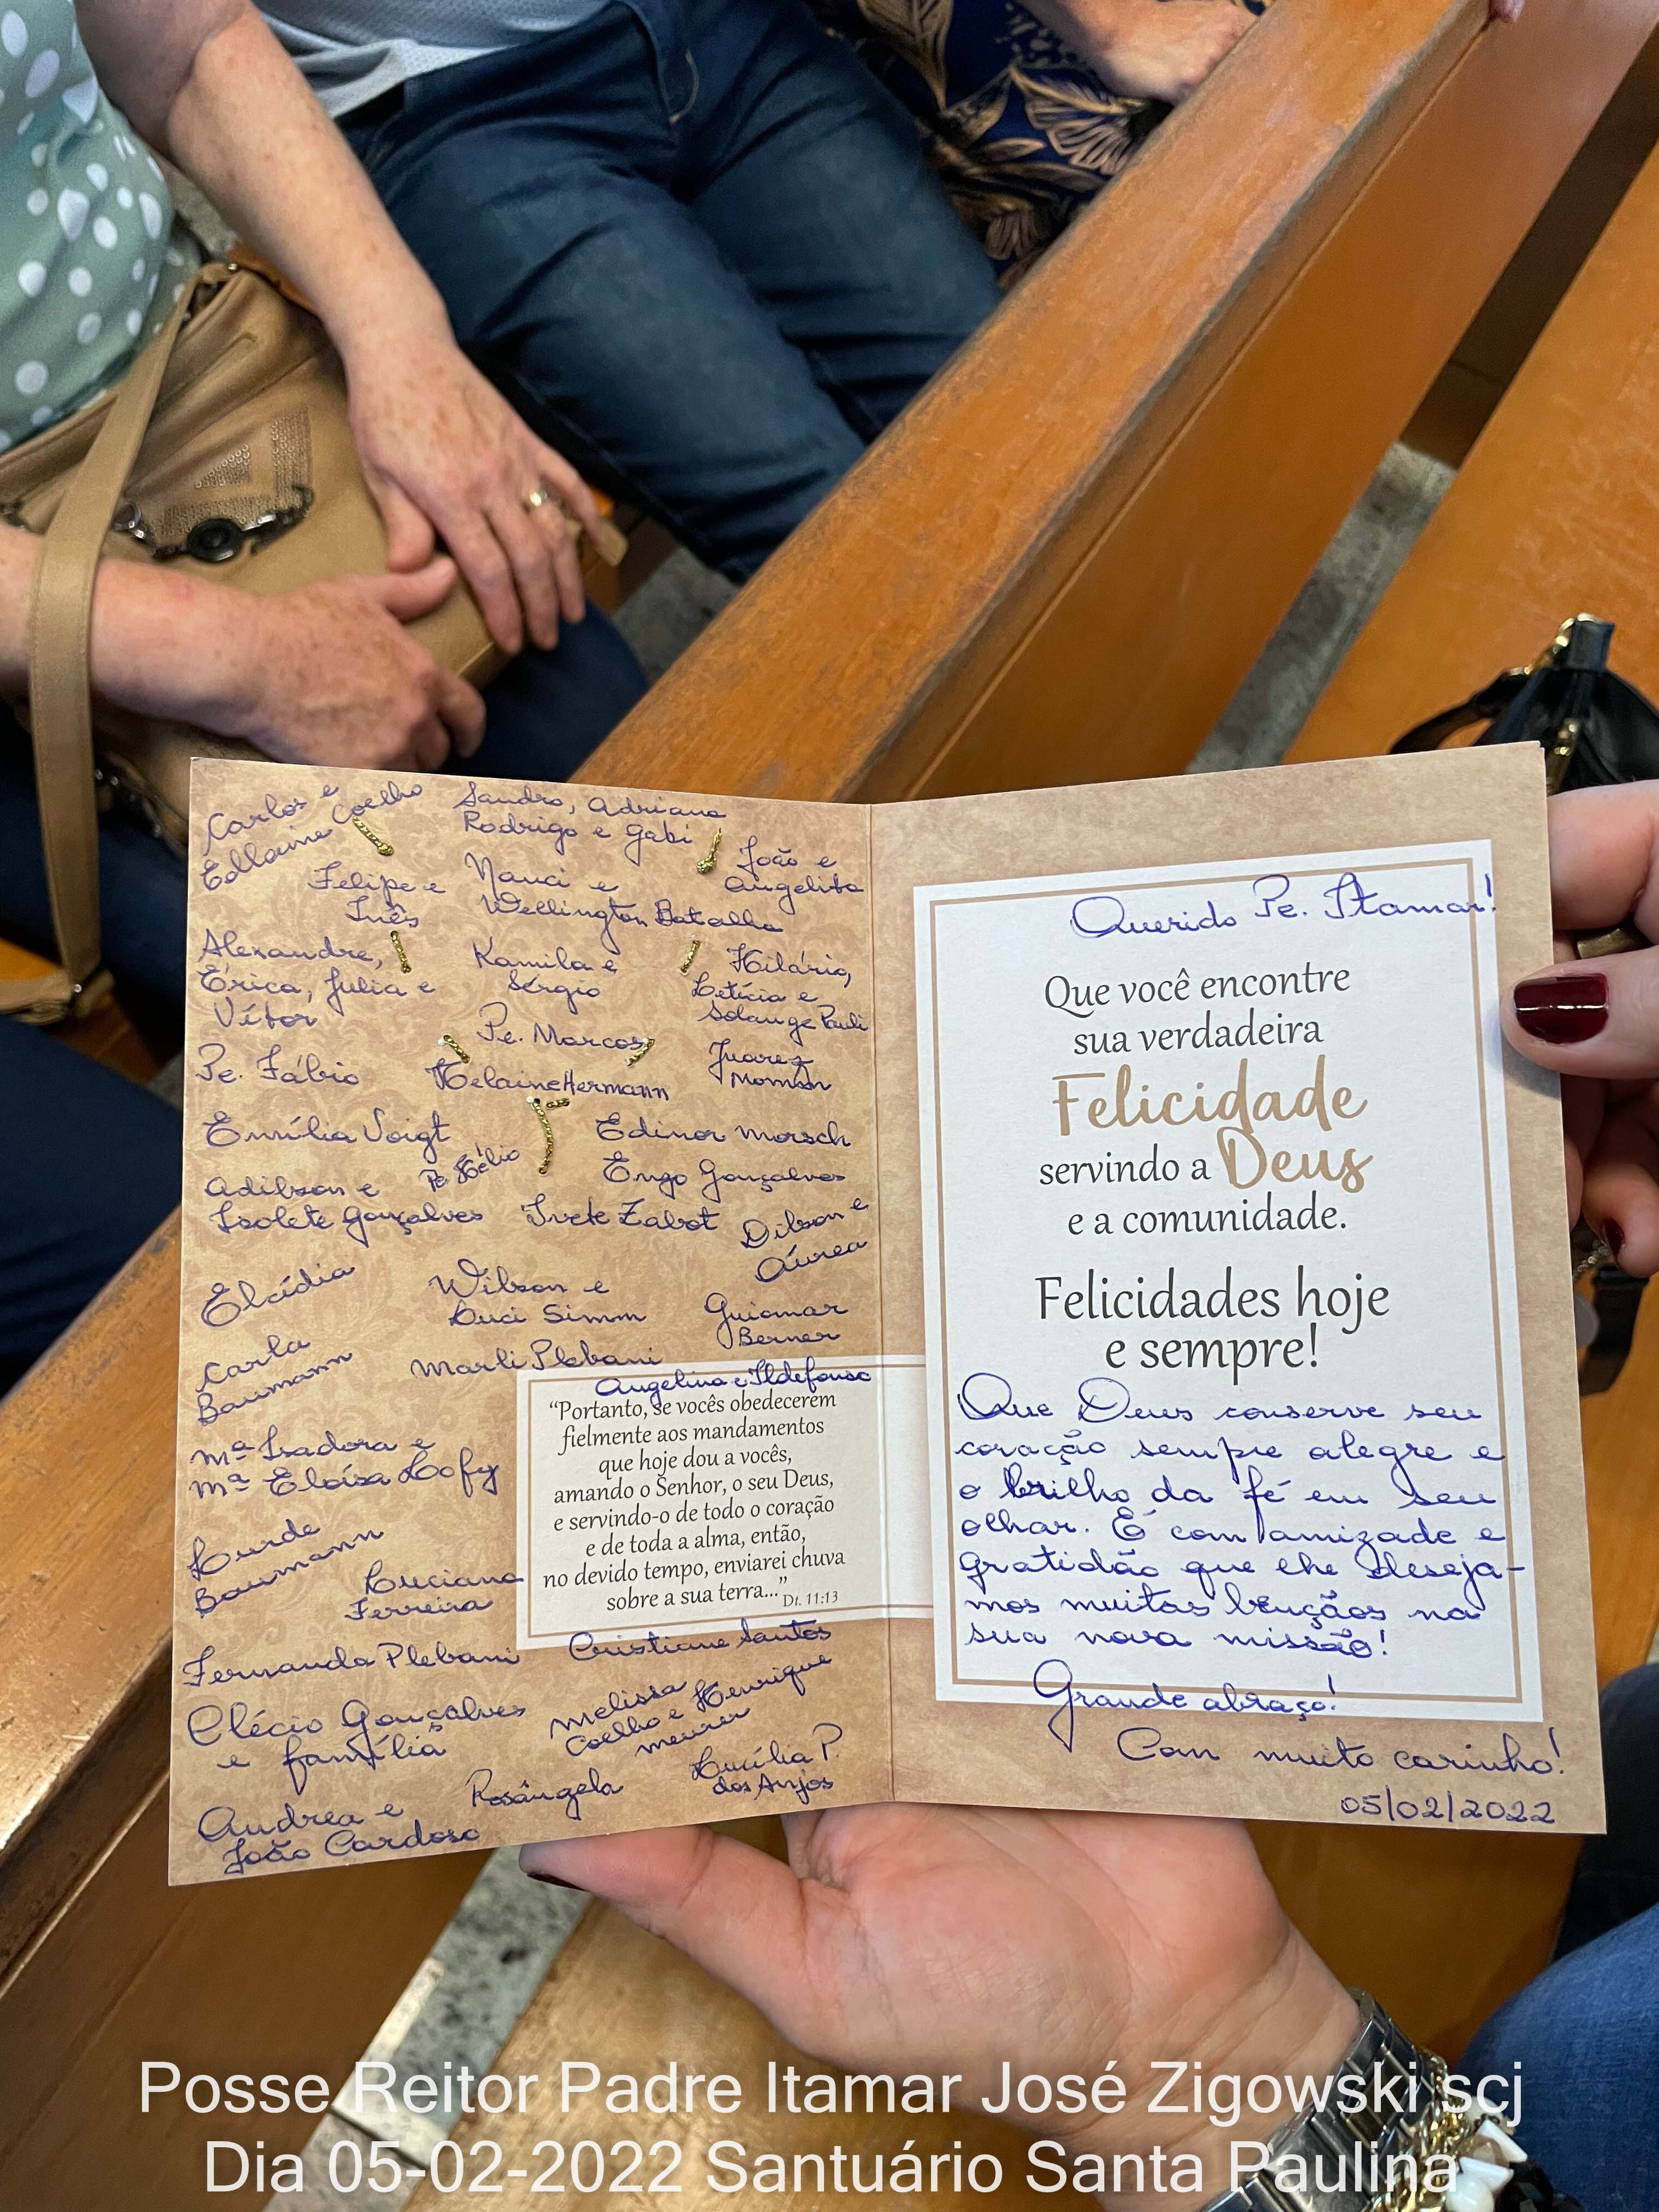 Carlos e
Edlaine Coelho
Sandro, Adriana
Rodrigo e Gabi
João e
Angelita
Felipe e
Inês
Nanci e
Wellington Batalha
Alexandre,
Érica, Julia e
Vítor
Kamila e
Sérgio
Hilário,
Letícia e
Solange Pauli
Pe. Marcos
Pe. Fábio
Helaine Hermann
Juarez
Momm
Emília Voigt
Pe Hélio
Edinor Morsch
Adilson e
Isolete Gonçalves
Engo Gonçalves
Ivete Zabot
Dilson e
Áurea
Elcídia
Wilson e
Luci Simm
Guiomar
Berner
Carla
Baumann
Marli Plebani
Angelina e Ildefonso
“Portanto, se vocês obedecerem
fielmente aos mandamentos
que hoje dou a vocês,
amando o Senhor, o seu Deus,
e servindo-o de todo o coração
e de toda a alma, então,
no devido tempo, enviarei chuva
sobre a sua terra...”
Dt. 11:13
Mª Isadora e
Mª Eloísa Lofy
Lurde
Baumann
Luciana
Ferreira
Fernanda Plebani
Cristiane Santos
Clécio Gonçalves
e família
Melissa
Coelho e Henrique
Meurer
Andrea e
João Cardoso
Rosângela
Lucília P.
dos Anjos
Querido Pe. Itamar!
Que você encontre
sua verdadeira
Felicidade
servindo a Deus
e a comunidade.
Felicidades hoje
e sempre!
Que Deus conserve seu
coração sempre alegre e
o brilho da fé em seu
olhar. É com amizade e
gratidão que lhe deseja-
mos muitas bençãos na
sua nova missão!
Grande abraço!
Com muito carinho!
05/02/2022
Posse Reitor Padre Itamar José Zigowski scj
Dia 05-02-2022 Santuário Santa Paulina